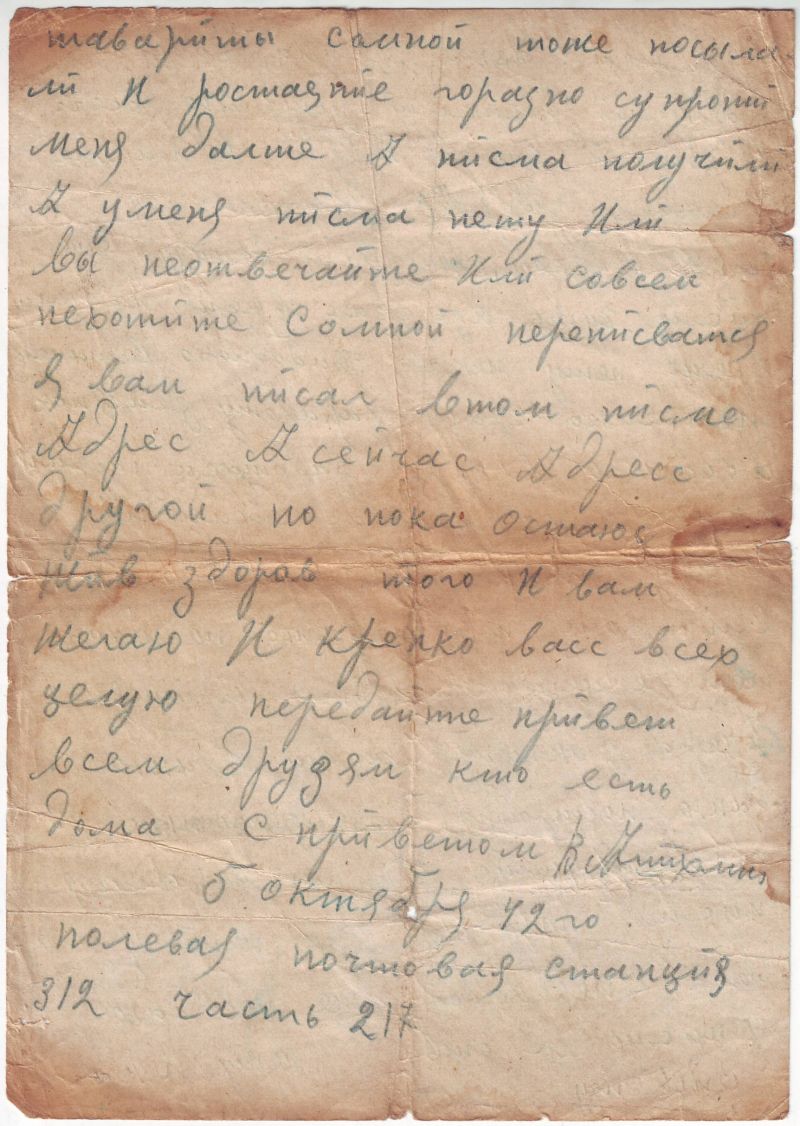 таварищы сомной тоже посыла
ли И ростаяние горазно супроти
меня далше А писма получили
А уменя писма нету Или
вы неотвечайте Или совсем
нехотите Сомной переписватся
Я вам писал втом писме
Адрес А сейчас Адресс
другой но пока Остаюс
жив здоров того И вам
желаю И крепко васс всех
целую передайте привет
всем друзям кто есть
дома С приветом
5 октября 42 го
полевая почтовая станция
312 часть 217